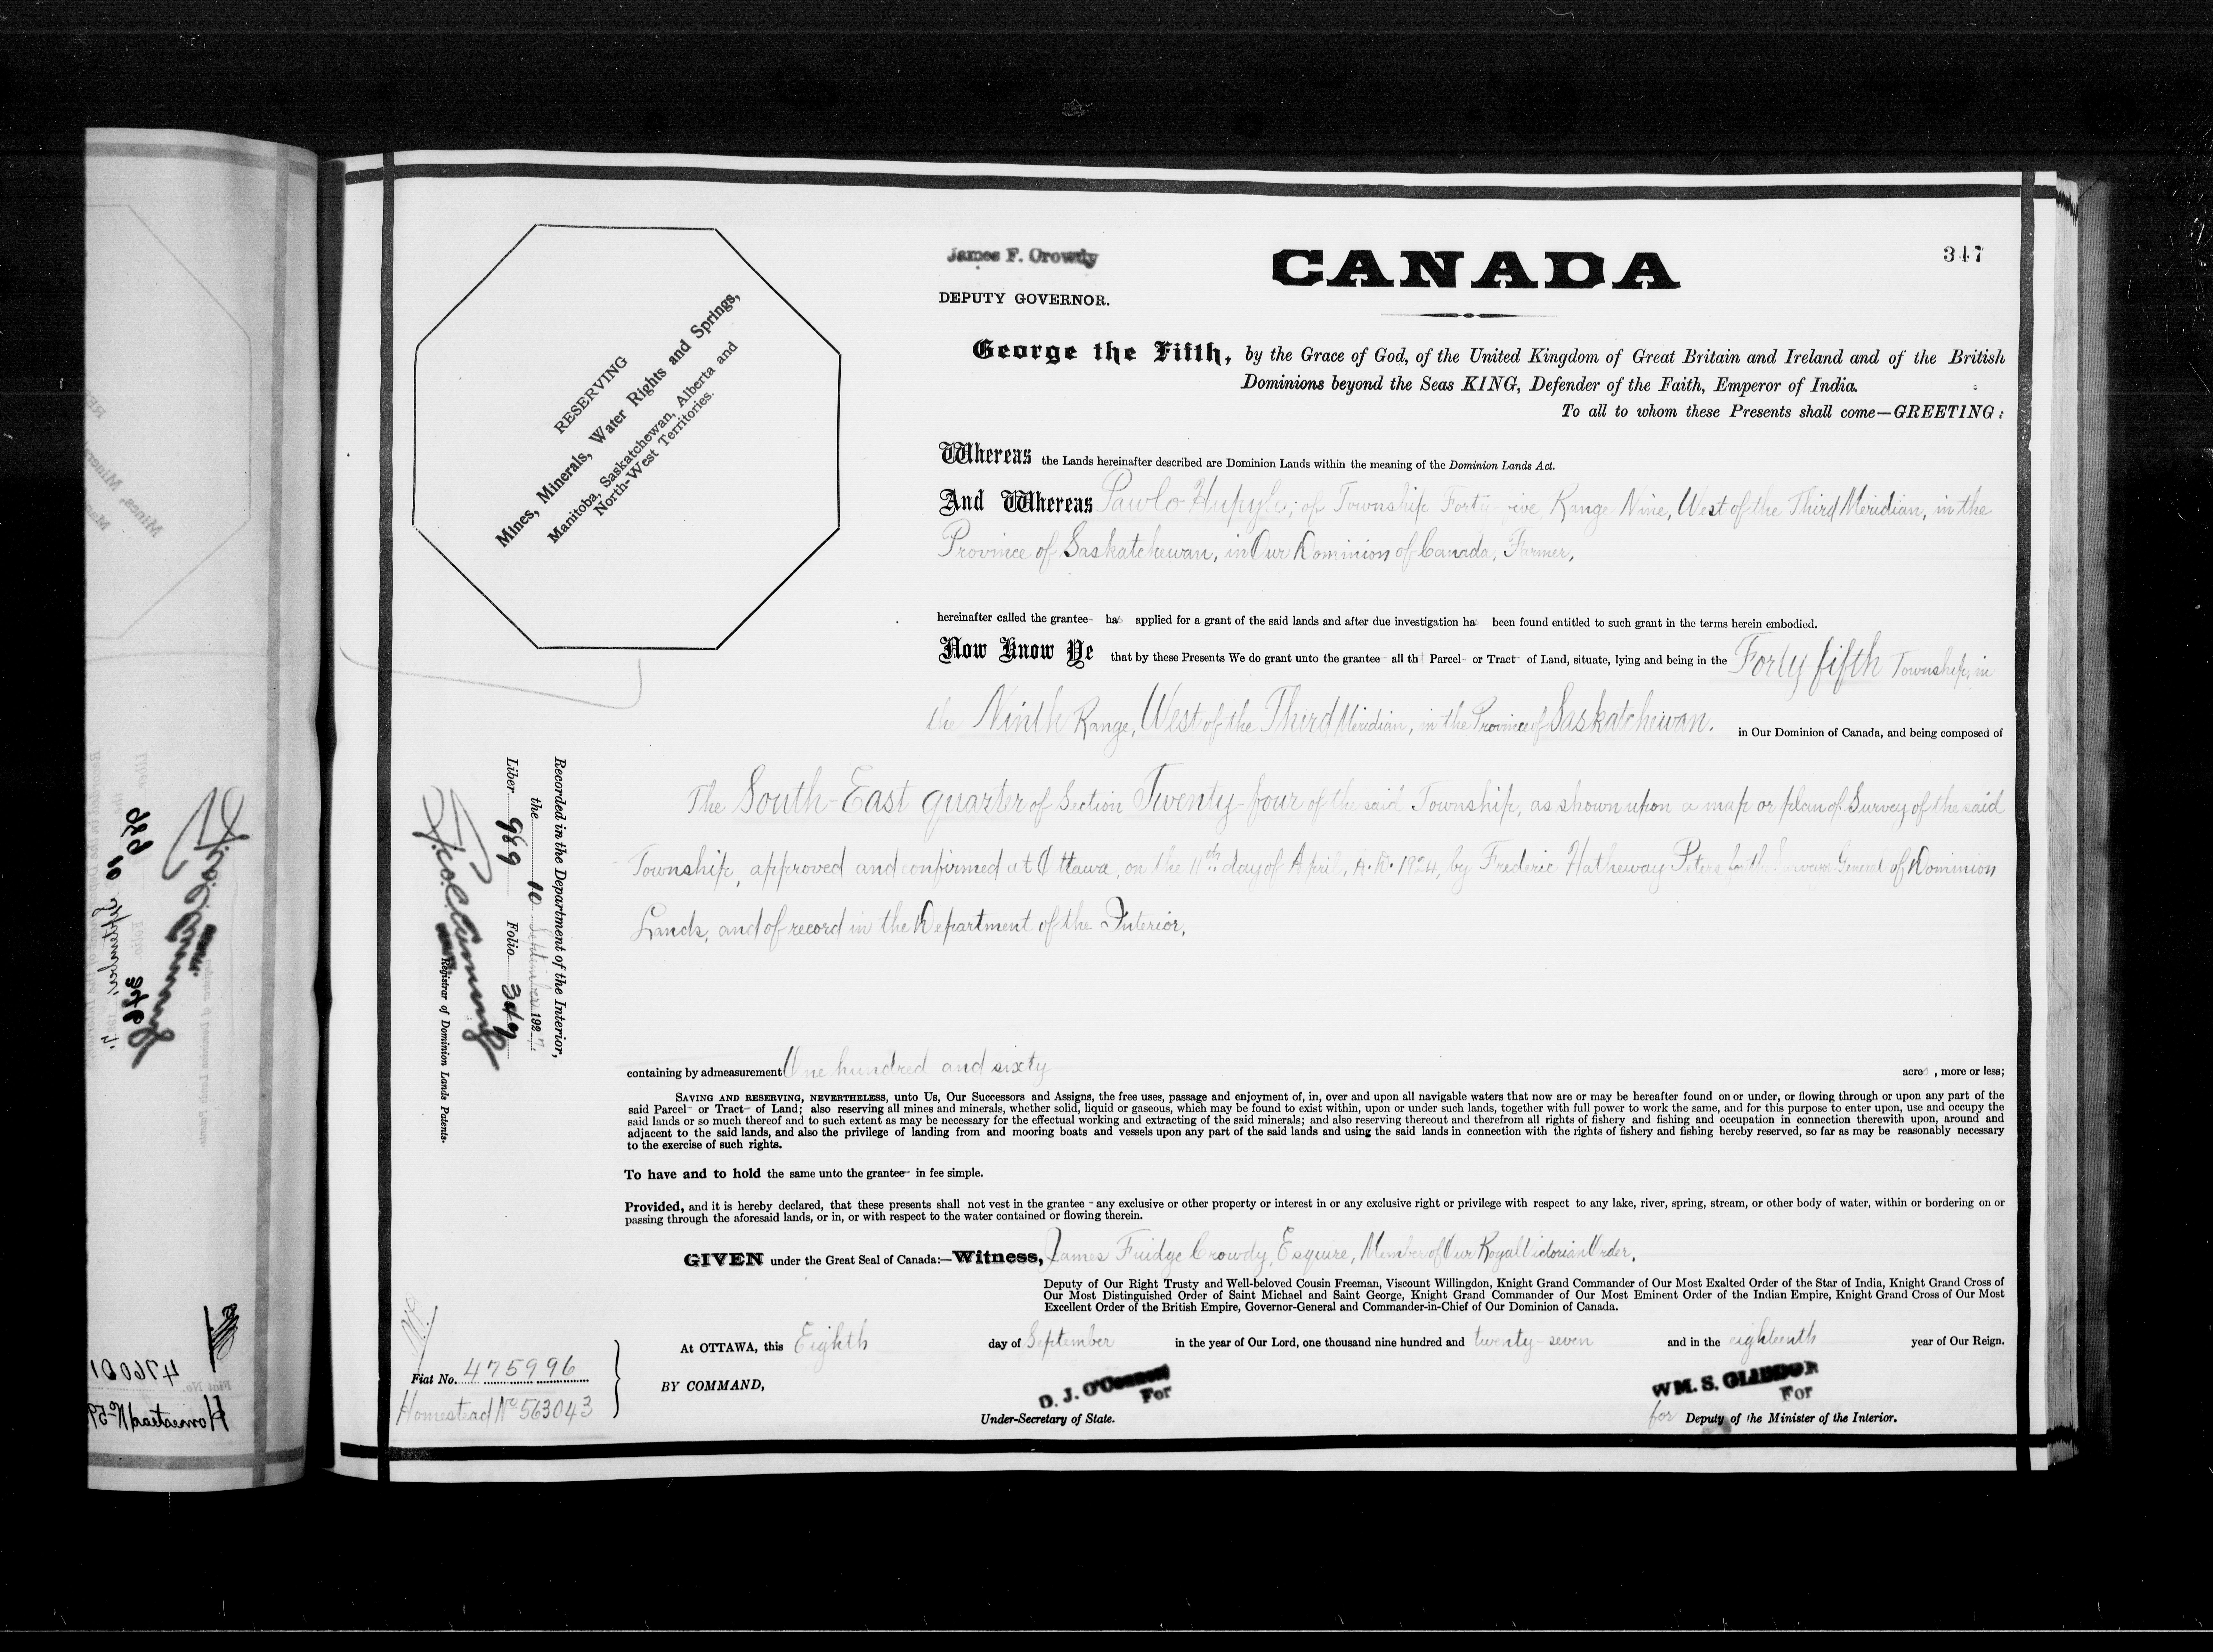 347
James F. Crowdy
DEPUTY GOVERNOR.
CANADA
George the Fifth, by the Grace of God, of the United Kingdom of Great Britain and Ireland and of the British
Dominions beyond the Seas KING, Defender of the Faith, Emperor of India.
To all to whom these Presents shall come—GREETING:
RESERVING
Mines, Minerals, Water Rights and Springs,
Manitoba, Saskatchewan, Alberta and
North-West Territories.
Whereas the Lands hereinafter described are Dominion Lands within the meaning of the Dominion Lands Act.
And Whereas Pawlo Hupyle; of Township Forty-five, Range Nine, West of the Third Meridian, in the
Province of Saskatchewan, in Our Dominion of Canada, Farmer,
hereinafter called the grantee- has applied for a grant of the said lands and after due investigation has been found entitled to such grant in the terms herein embodied.
Now Know Ye that by these Presents We do grant unto the grantee- all th t Parcel- or Tract- of Land, situate, lying and being in the Forty-fifth Township, in
the Ninth Range, West of the Third Meridian, in the Province of Saskatchewan. in Our Dominion of Canada, and being composed of
The South-East quarter of Section Twenty-four of the said Township, as shown upon a map or plan of Survey of the said
Township, approved and confirmed at Ottawa, on the 11th day of April, A.D. 1924, by Frederic Hatheway Peters for the Surveyor General of Dominion
Lands, and of record in the Department of the Interior,
Recorded in the Department of the Interior,
the 10 September 1927.
Liber 989 Folio 347
Registrar of Dominion Lands Patents.
containing by admeasurement One hundred and sixty acres, more or less;
SAVING AND RESERVING, NEVERTHELESS, unto Us, Our Successors and Assigns, the free uses, passage and enjoyment of, in, over and upon all navigable waters that now are or may be hereafter found on or under, or flowing through or upon any part of the
said Parcel- or Tract- of Land; also reserving all mines and minerals, whether solid, liquid or gaseous, which may be found to exist within, upon or under such lands, together with full power to work the same, and for this purpose to enter upon, use and occupy the
said lands or so much thereof and to such extent as may be necessary for the effectual working and extracting of the said minerals; and also reserving thereout and therefrom all rights of fishery and fishing and occupation in connection therewith upon, around and
adjacent to the said lands, and also the privilege of landing from and mooring boats and vessels upon any part of the said lands and using the said lands in connection with the rights of fishery and fishing hereby reserved, so far as may be reasonably necessary
to the exercise of such rights.
To have and to hold the same unto the grantee- in fee simple.
Provided, and it is hereby declared, that these presents shall not vest in the grantee - any exclusive or other property or interest in or any exclusive right or privilege with respect to any lake, river, spring, stream, or other body of water, within or bordering on or
passing through the aforesaid lands, or in, or with respect to the water contained or flowing therein.
GIVEN under the Great Seal of Canada:—Witness, James Fuidge Crowdy, Esquire, Member of Our Royal Victorian Order,
Deputy of Our Right Trusty and Well-beloved Cousin Freeman, Viscount Willingdon, Knight Grand Commander of Our Most Exalted Order of the Star of India, Knight Grand Cross of
Our Most Distinguished Order of Saint Michael and Saint George, Knight Grand Commander of Our Most Eminent Order of the Indian Empire, Knight Grand Cross of Our Most
Excellent Order of the British Empire, Governor-General and Commander-in-Chief of Our Dominion of Canada.
At OTTAWA, this Eighth day of September in the year of Our Lord, one thousand nine hundred and twenty-seven and in the eighteenth year of Our Reign.
Fiat No. 475996
Homestead No 563043
BY COMMAND,
D. J. O'Connor
For
Under-Secretary of State.
WM. S. GLIDDON
For
for Deputy of the Minister of the Interior.